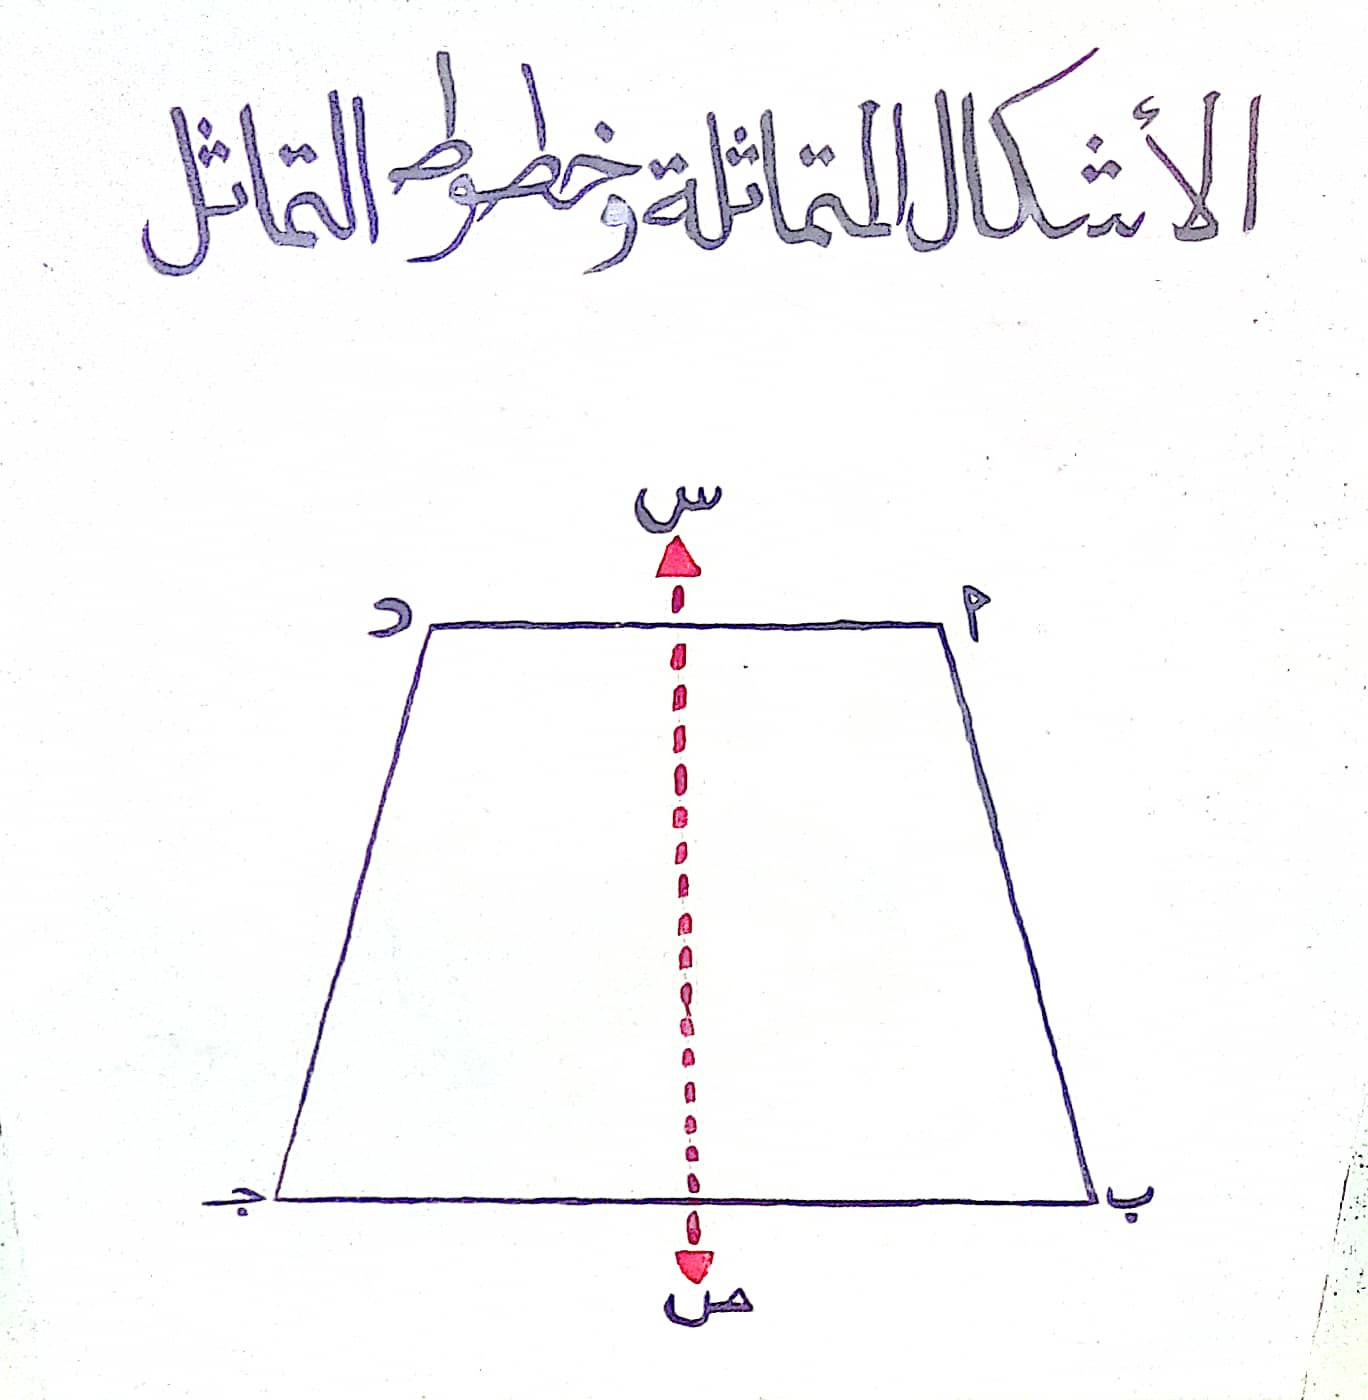 الأشكال المتماثلة وخطوط التماثل
س
د م
جـ ب
ص